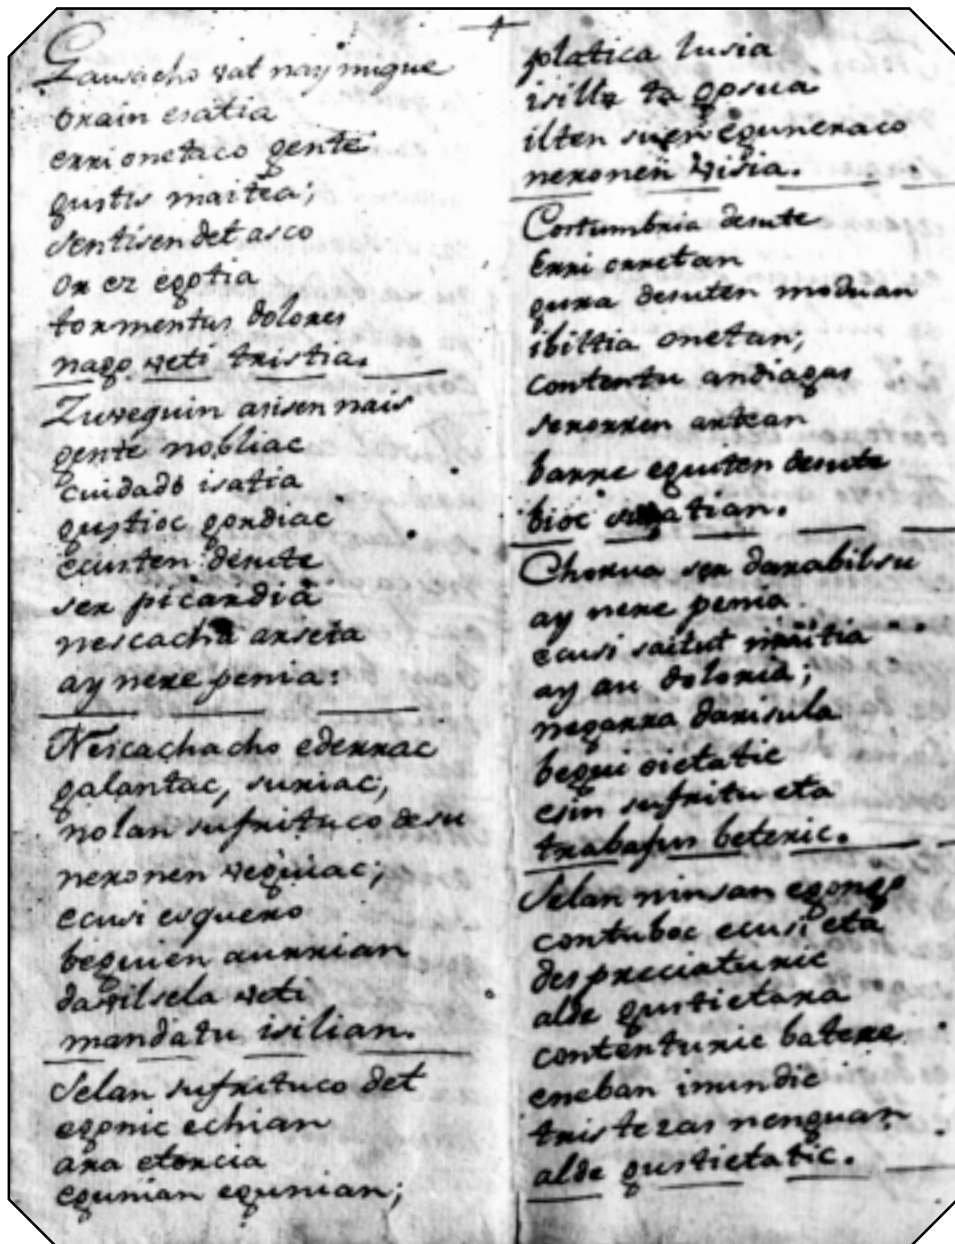 Gausacho vat nay nuque
orain esatia
erri onetaco gente
gustis maitea;
sentisen det asco
on ez egotia
tormentus dolores
nago veti tristia.
Zuvequin arisen nais
gente nobliac
cuidado isatia
gustioc gordiac
ecusten desute
ser picardia
nescacha arseta
ay nere penia:
Nescachacho ederrac
galantac, suriac,
nolan sufrituco desu
neronen veguiac;
ecusi esquero
beguien aurrian
davilsela veti
mandatu isilian.
Selan sufrituco det
egonic echian
ara etorcia
egunian egunian;
platica lusia
isilla ta gosua
ilten suen eguneraco
neronen visia.
Costumbria desute
Erri onetan
gura desuten moduan
ibiltia onetan,
contentu andiagas
seroren artean
barre eguiten desute
bioc
Chorua ser darabilsu
ay nere penia
ecusi saitut
ay au doloria;
negarra darisula
begui oietatic
esin sufritu eta
trabajus beteric.
Selan ninsan egongo
contuboc ecusi eta
despreciaturic
alde gustietara
contenturic batere
eneban imundic
tristezas nenguan
alde gustietatic.